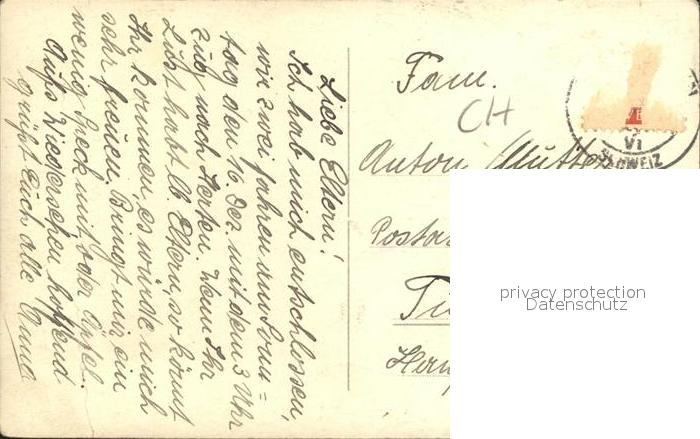 Liebe Eltern!
Ich hab mich entschlossen,
wir zwei fahren am Sonn=
tag den 16. Dez. mit dem 3 Uhr
Zug nach Horten. Wenn Ihr
Lust habt lb Eltern, so könnt
Ihr kommen, es würde mich
sehr freuen. Bringt mir ein
wenig Speck mit oder Äpfel.
Aufs Wiedersehen hoffend
grüßt Euch alle Anna
Fam.
CH
Anton Mutter
Posta
VI
SCHWEIZ
privacy protection
Datenschutz